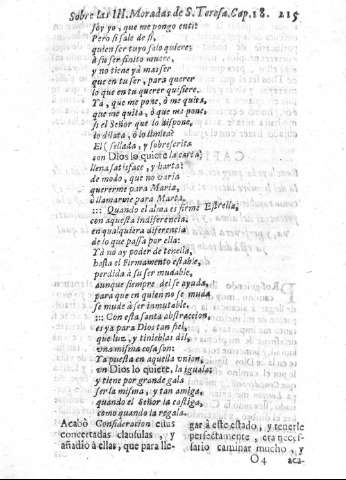 Sobre las III. Moradas de S. Teresa. Cap. 18. 215
soy yo, que me pongo en ti?
Pero si sale de si,
quien ser tuyo solo quiere;
à su ser finito muere,
y no tiene yà mas ser
que en tu ser, para querer
lo que en tu querer quisiere.
Yà, que me pone, ò me quita,
que me quita, ò que me pone,
si el Señor que lo dispone,
lo dilata, ò lo limita?
El sellada, y sobrescrita
con Dios lo quiere la carta;
llena satisface, y harta:
de modo, que no varia
quererme para Maria,
ò llamarme para Marta.
::: Quando el alma es firme Estrella,
con aquesta indiferencia,
en qualquiera diferencia
de lo que passa por ella:
Yà no ay poder de tenella,
hasta el Firmamento estable,
perdida à su ser mudable,
aunque siempre del se ayuda,
para que en quien no se muda
se mude à ser inmutable.
::: Con esta santa abstraccion,
es ya para Dios tan fiel,
que luz, y tinieblas dèl,
una misma cosa son:
Ya puesta en aquella union,
un Dios lo quiere, la iguala;
y tiene por grande gala
ser la misma, y tan amiga,
quando el Señor la castiga,
como quando la regala.
Acabò Consideration estas
concertadas clausulas, y
añadiò à ellas, que para lle-
gar à este estado, y tenerle
perfectamente, era neces-
sario caminar mucho, y
O 4 aca-